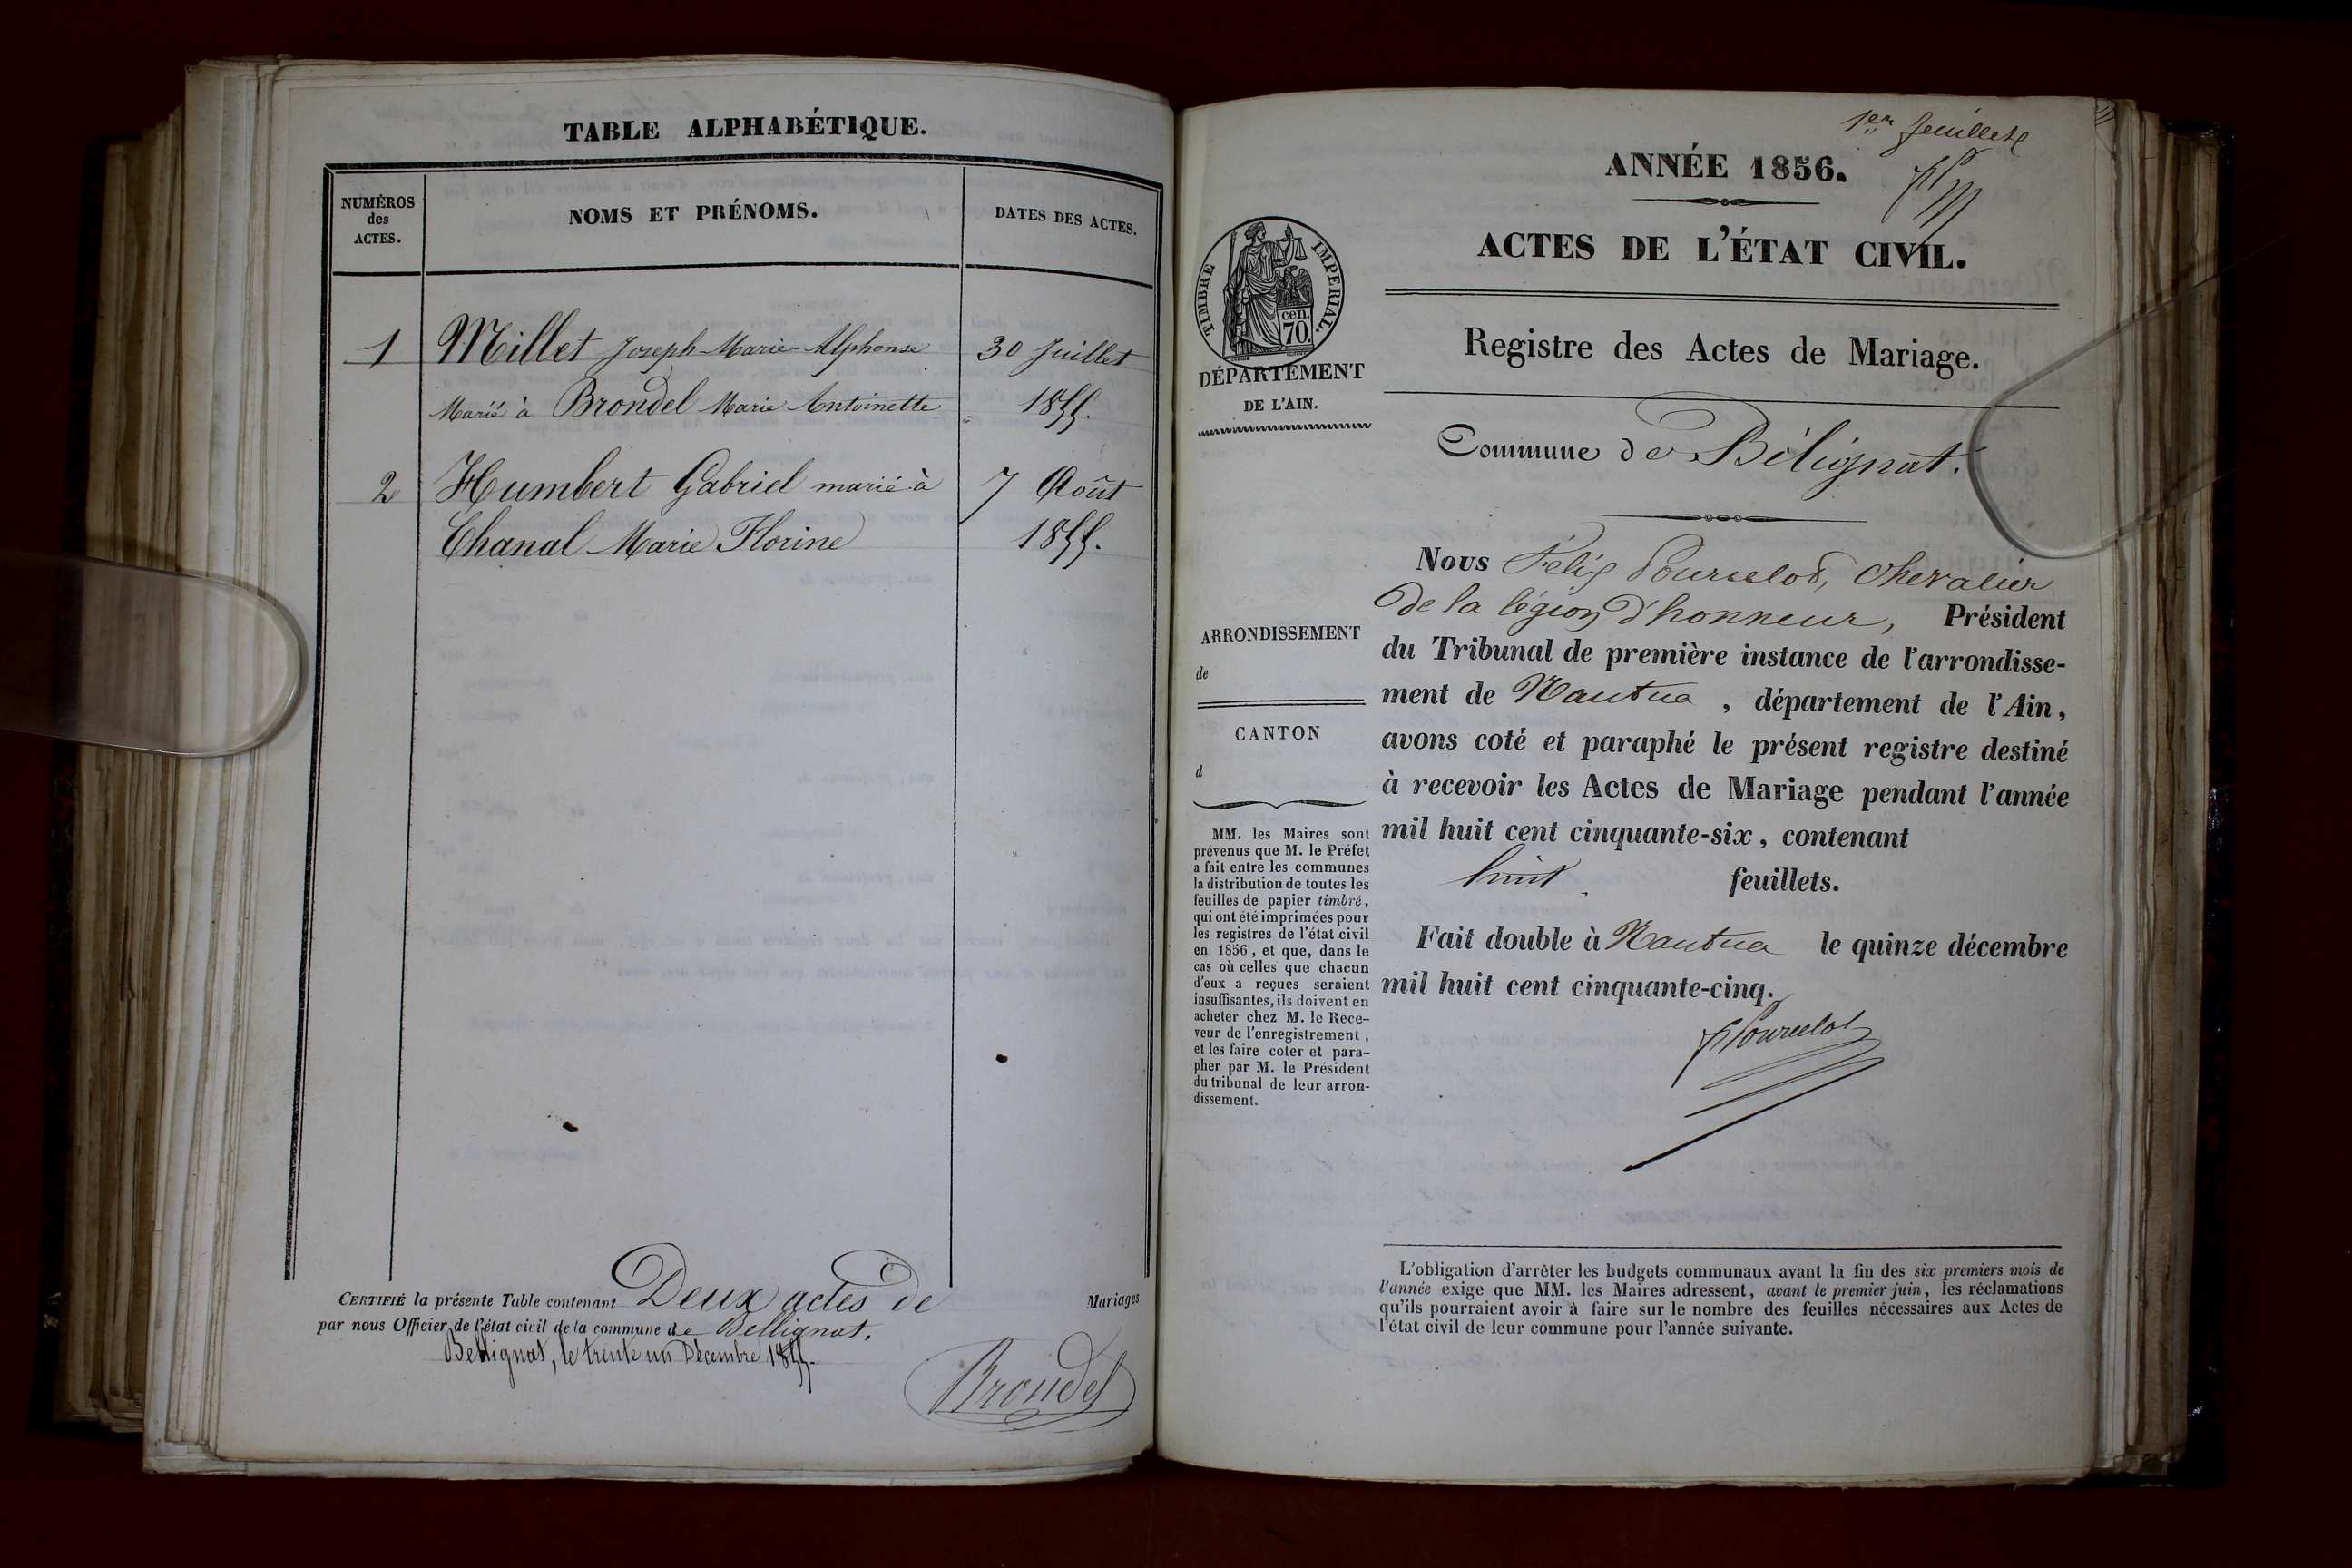 TABLE ALPHABÉTIQUE.
NUMÉROS
des
ACTES.
NOMS ET PRÉNOMS.
DATES DES ACTES.
1 Millet Joseph-Marie-Alphonse 30 Juillet
Marié à Brondel Marie Antoinette 1855.
2 Humbert Gabriel marié à 7 Août
Chanal Marie Florine 1855.
CERTIFIÉ la présente Table contenant Deux actes de Mariages
par nous Officier de l'état civil de la commune de Bellignat.
Bellignat, le trente un Décembre 1855.
Brondel
1er feuillet
ANNÉE 1856.
ACTES DE L'ÉTAT CIVIL.
TIMBRE IMPERIAL.
cen.
70.
DÉPARTEMENT
DE L'AIN.
Registre des Actes de Mariage.
Commune de Bélignat.
ARRONDISSEMENT
de
CANTON
d
MM. les Maires sont
prévenus que M. le Préfet
a fait entre les communes
la distribution de toutes les
feuilles de papier timbré,
qui ont été imprimées pour
les registres de l'état civil
en 1856, et que, dans le
cas où celles que chacun
d'eux a reçues seraient
insuffisantes, ils doivent en
acheter chez M. le Rece-
veur de l'enregistrement,
et les faire coter et para-
pher par M. le Président
du tribunal de leur arron-
dissement.
Nous Félix Pourcelot, chevalier
de la légion d'honneur, Président
du Tribunal de première instance de l'arrondisse-
ment de Nantua, département de l'Ain,
avons coté et paraphé le présent registre destiné
à recevoir les Actes de Mariage pendant l'année
mil huit cent cinquante-six, contenant
huit feuillets.
Fait double à Nantua le quinze décembre
mil huit cent cinquante-cinq.
Pourcelot
L'obligation d'arrêter les budgets communaux avant la fin des six premiers mois de
l'année exige que MM. les Maires adressent, avant le premier juin, les réclamations
qu'ils pourraient avoir à faire sur le nombre des feuilles nécessaires aux Actes de
l'état civil de leur commune pour l'année suivante.